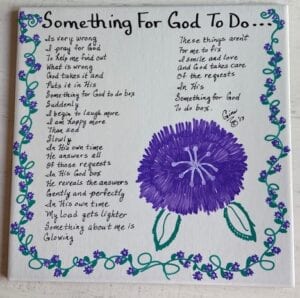 Something For God To Do...
Is very wrong
I pray for God
To help me find out
What is wrong
God takes it and
Puts it in His
Something for God to do box
Suddenly
I begin to laugh more
I am happy more
Than sad
Slowly
In His own time
He answers all
Of those requests
In His God box
He reveals the answers
Gently and perfectly
In His own time
My load gets lighter
Something about me is
Glowing
These things aren't
For me to fix
I smile and love
And God takes care
Of the requests
In His
Something for God
To do box.